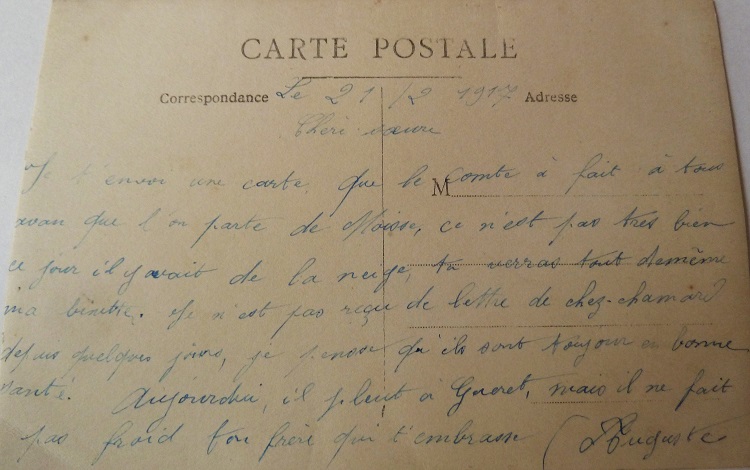 CARTE POSTALE
Correspondance Le 21/2 1917 Adresse
Chèri sœure
Je t'envoi une carte que le comte à fait à tous
M
avan que l'on parte de Moisse, ce n'est pas très bien
ce jour il y avait de la neige, tu verras tout demême
ma binette. Je n'est pas reçu de lettre de chez-chamard
depuis quelques jours, je pense qu'ils sont toujour en bonne
santé. Aujourdui, il pleut a Gueret, mais il ne fait
pas froid ton frère qui t'embrasse Auguste